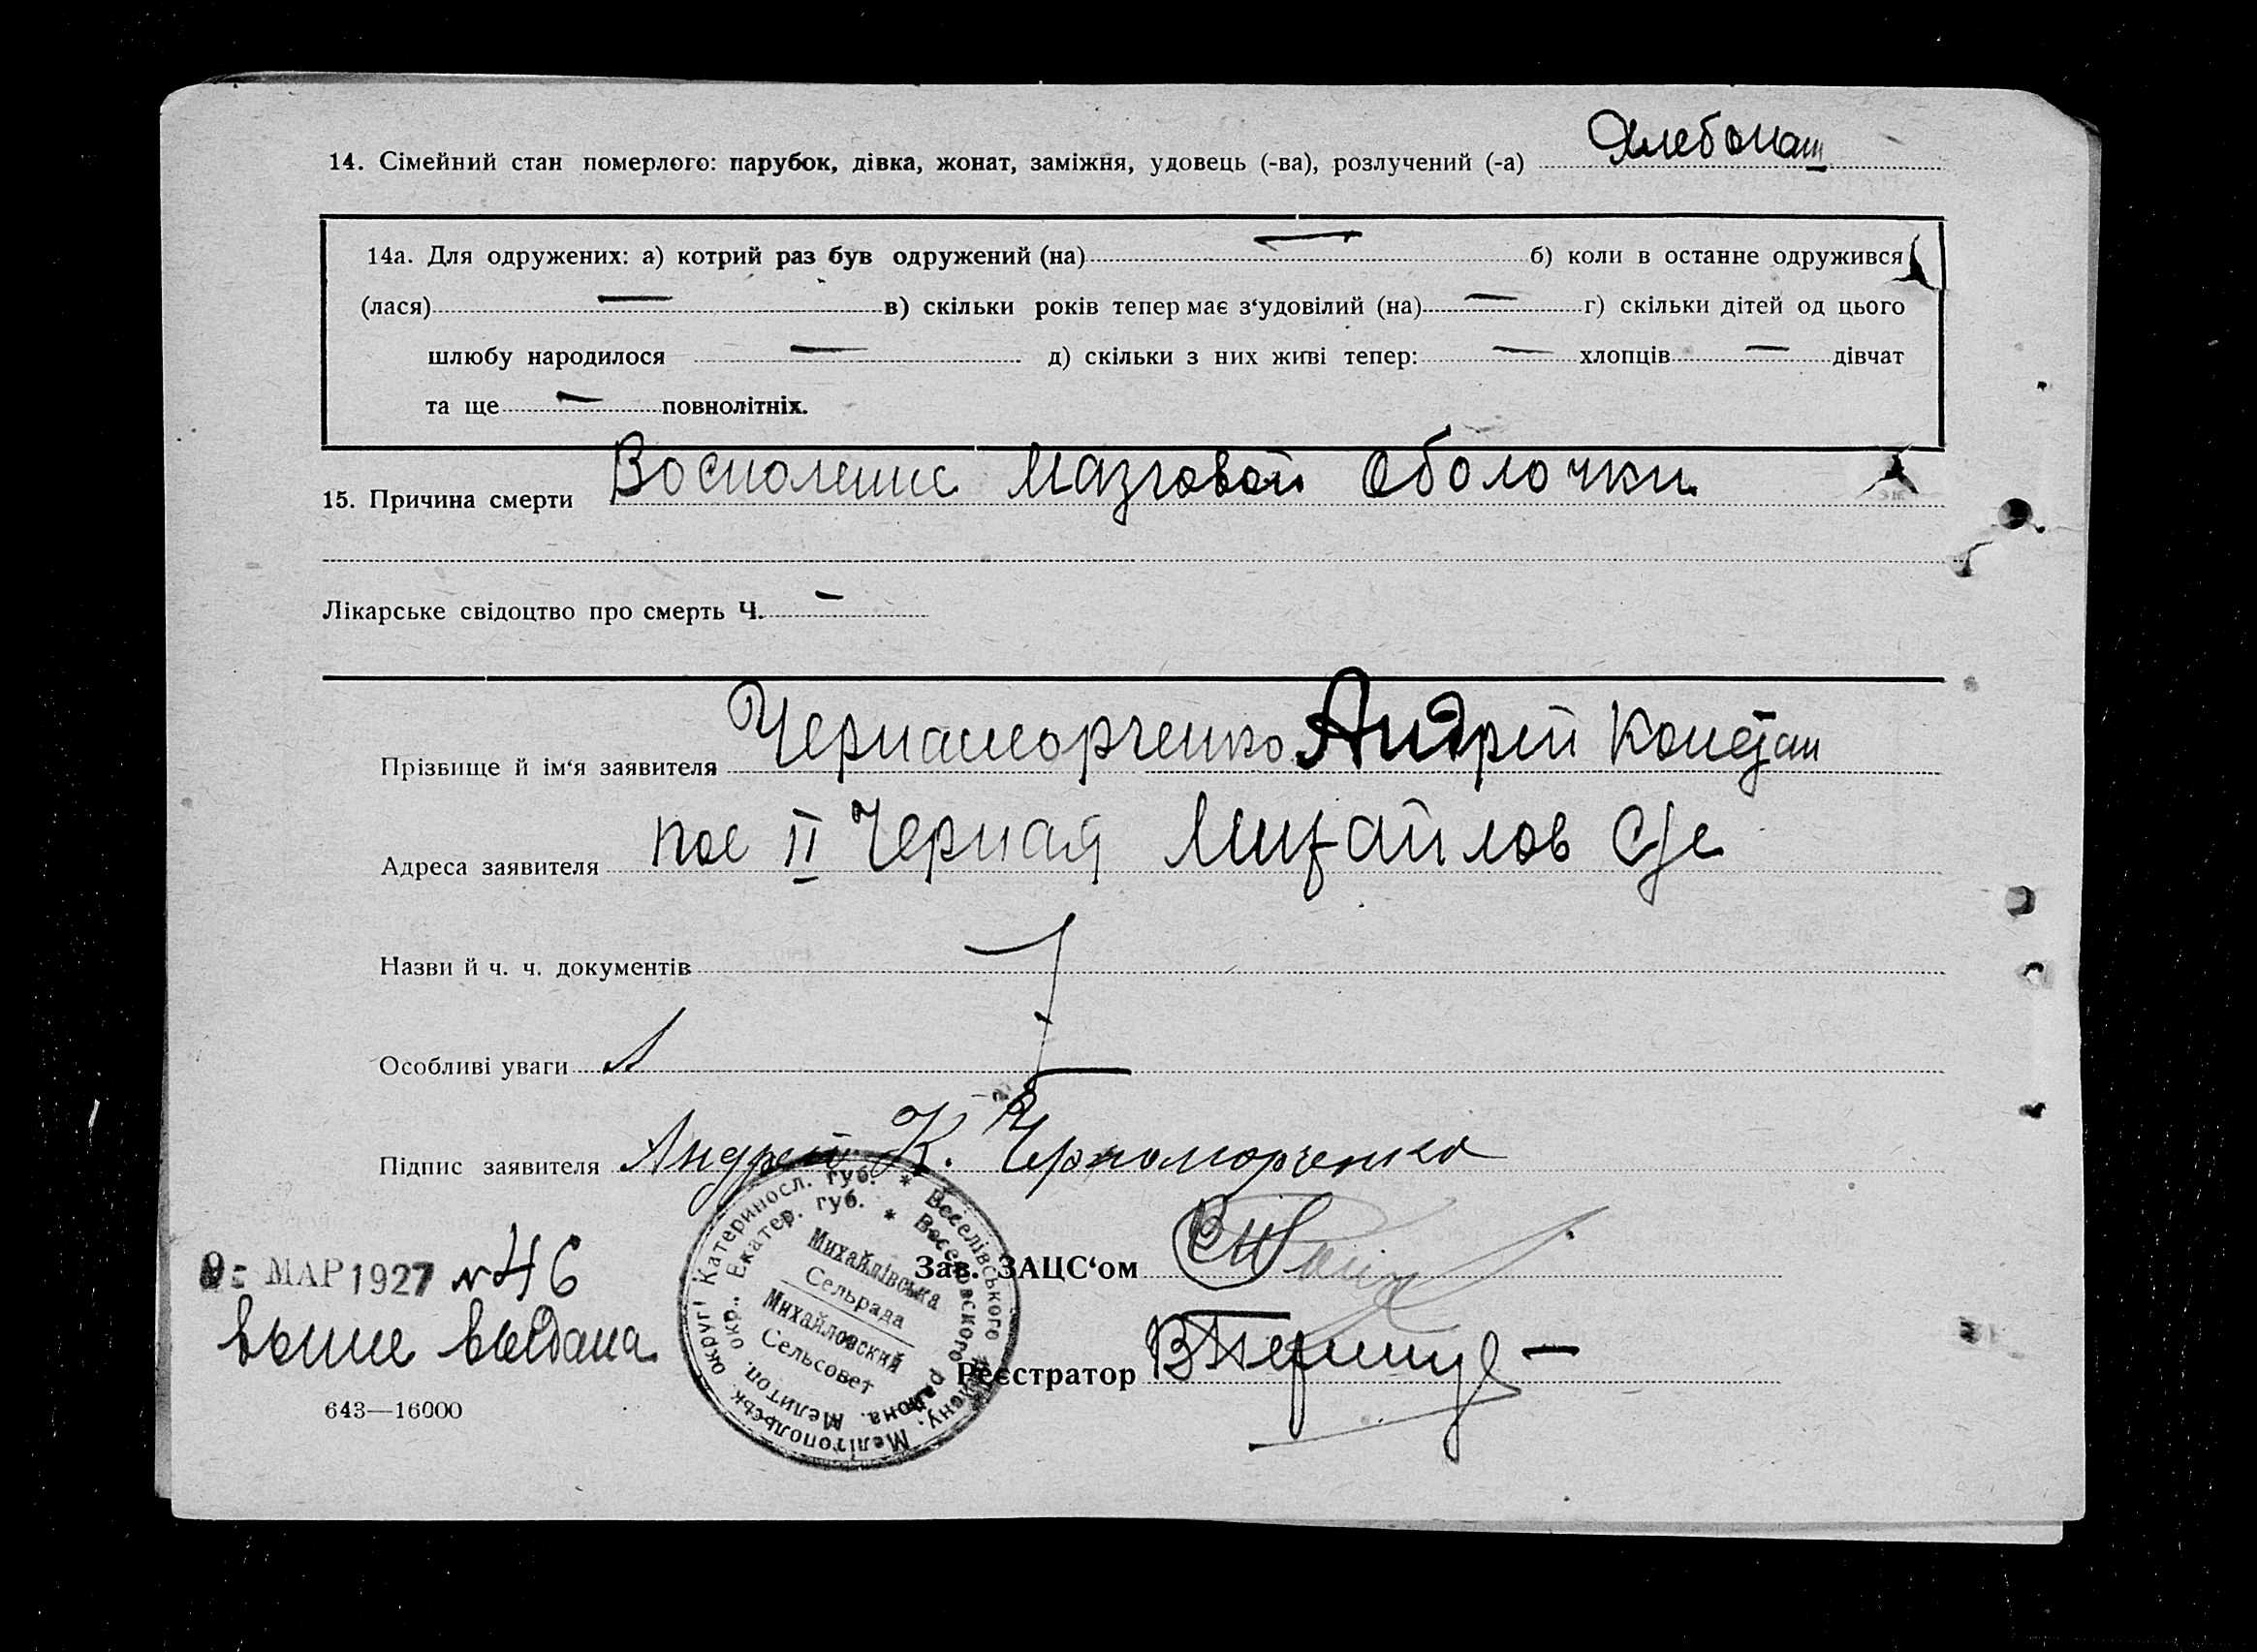 14. Сімейний стан померлого: парубок, дівка, жонат, заміжня, удовець (-ва), розлучений (-а) Хлебопаш
14а. Для одружених: а) котрий раз був одружений (на) — б) коли в останне одружився
(лася) — в) скільки років тепер має з‘удовілий (на) — г) скільки дітей од цього
шлюбу народилося — д) скільки з них живі тепер: — хлопців — дівчат
та ще — повнолітніх.
15. Причина смерти Восполение Мазговой Оболочки
Лікарське свідоцтво про смерть Ч. —
Прізвище й ім‘я заявителя Чернаморченко Андрей Констан
Адреса заявителя пос II Черная Михайлов С/с
Назви й ч. ч. документів
Особливі уваги
Підпис заявителя Андрей К. Черноморченко
Катериносл. губ. * Веселівського району, Мелітопольськ. округі
Екатер. губ. * Веселовского района, Мелитоп. окр.,
Михайлівська
Сельрада
Михайловский
Сельсовет
Зав. ЗАЦС‘ом
9 - МАР 1927 №46
выпис выдана
Реєстратор
643—16000